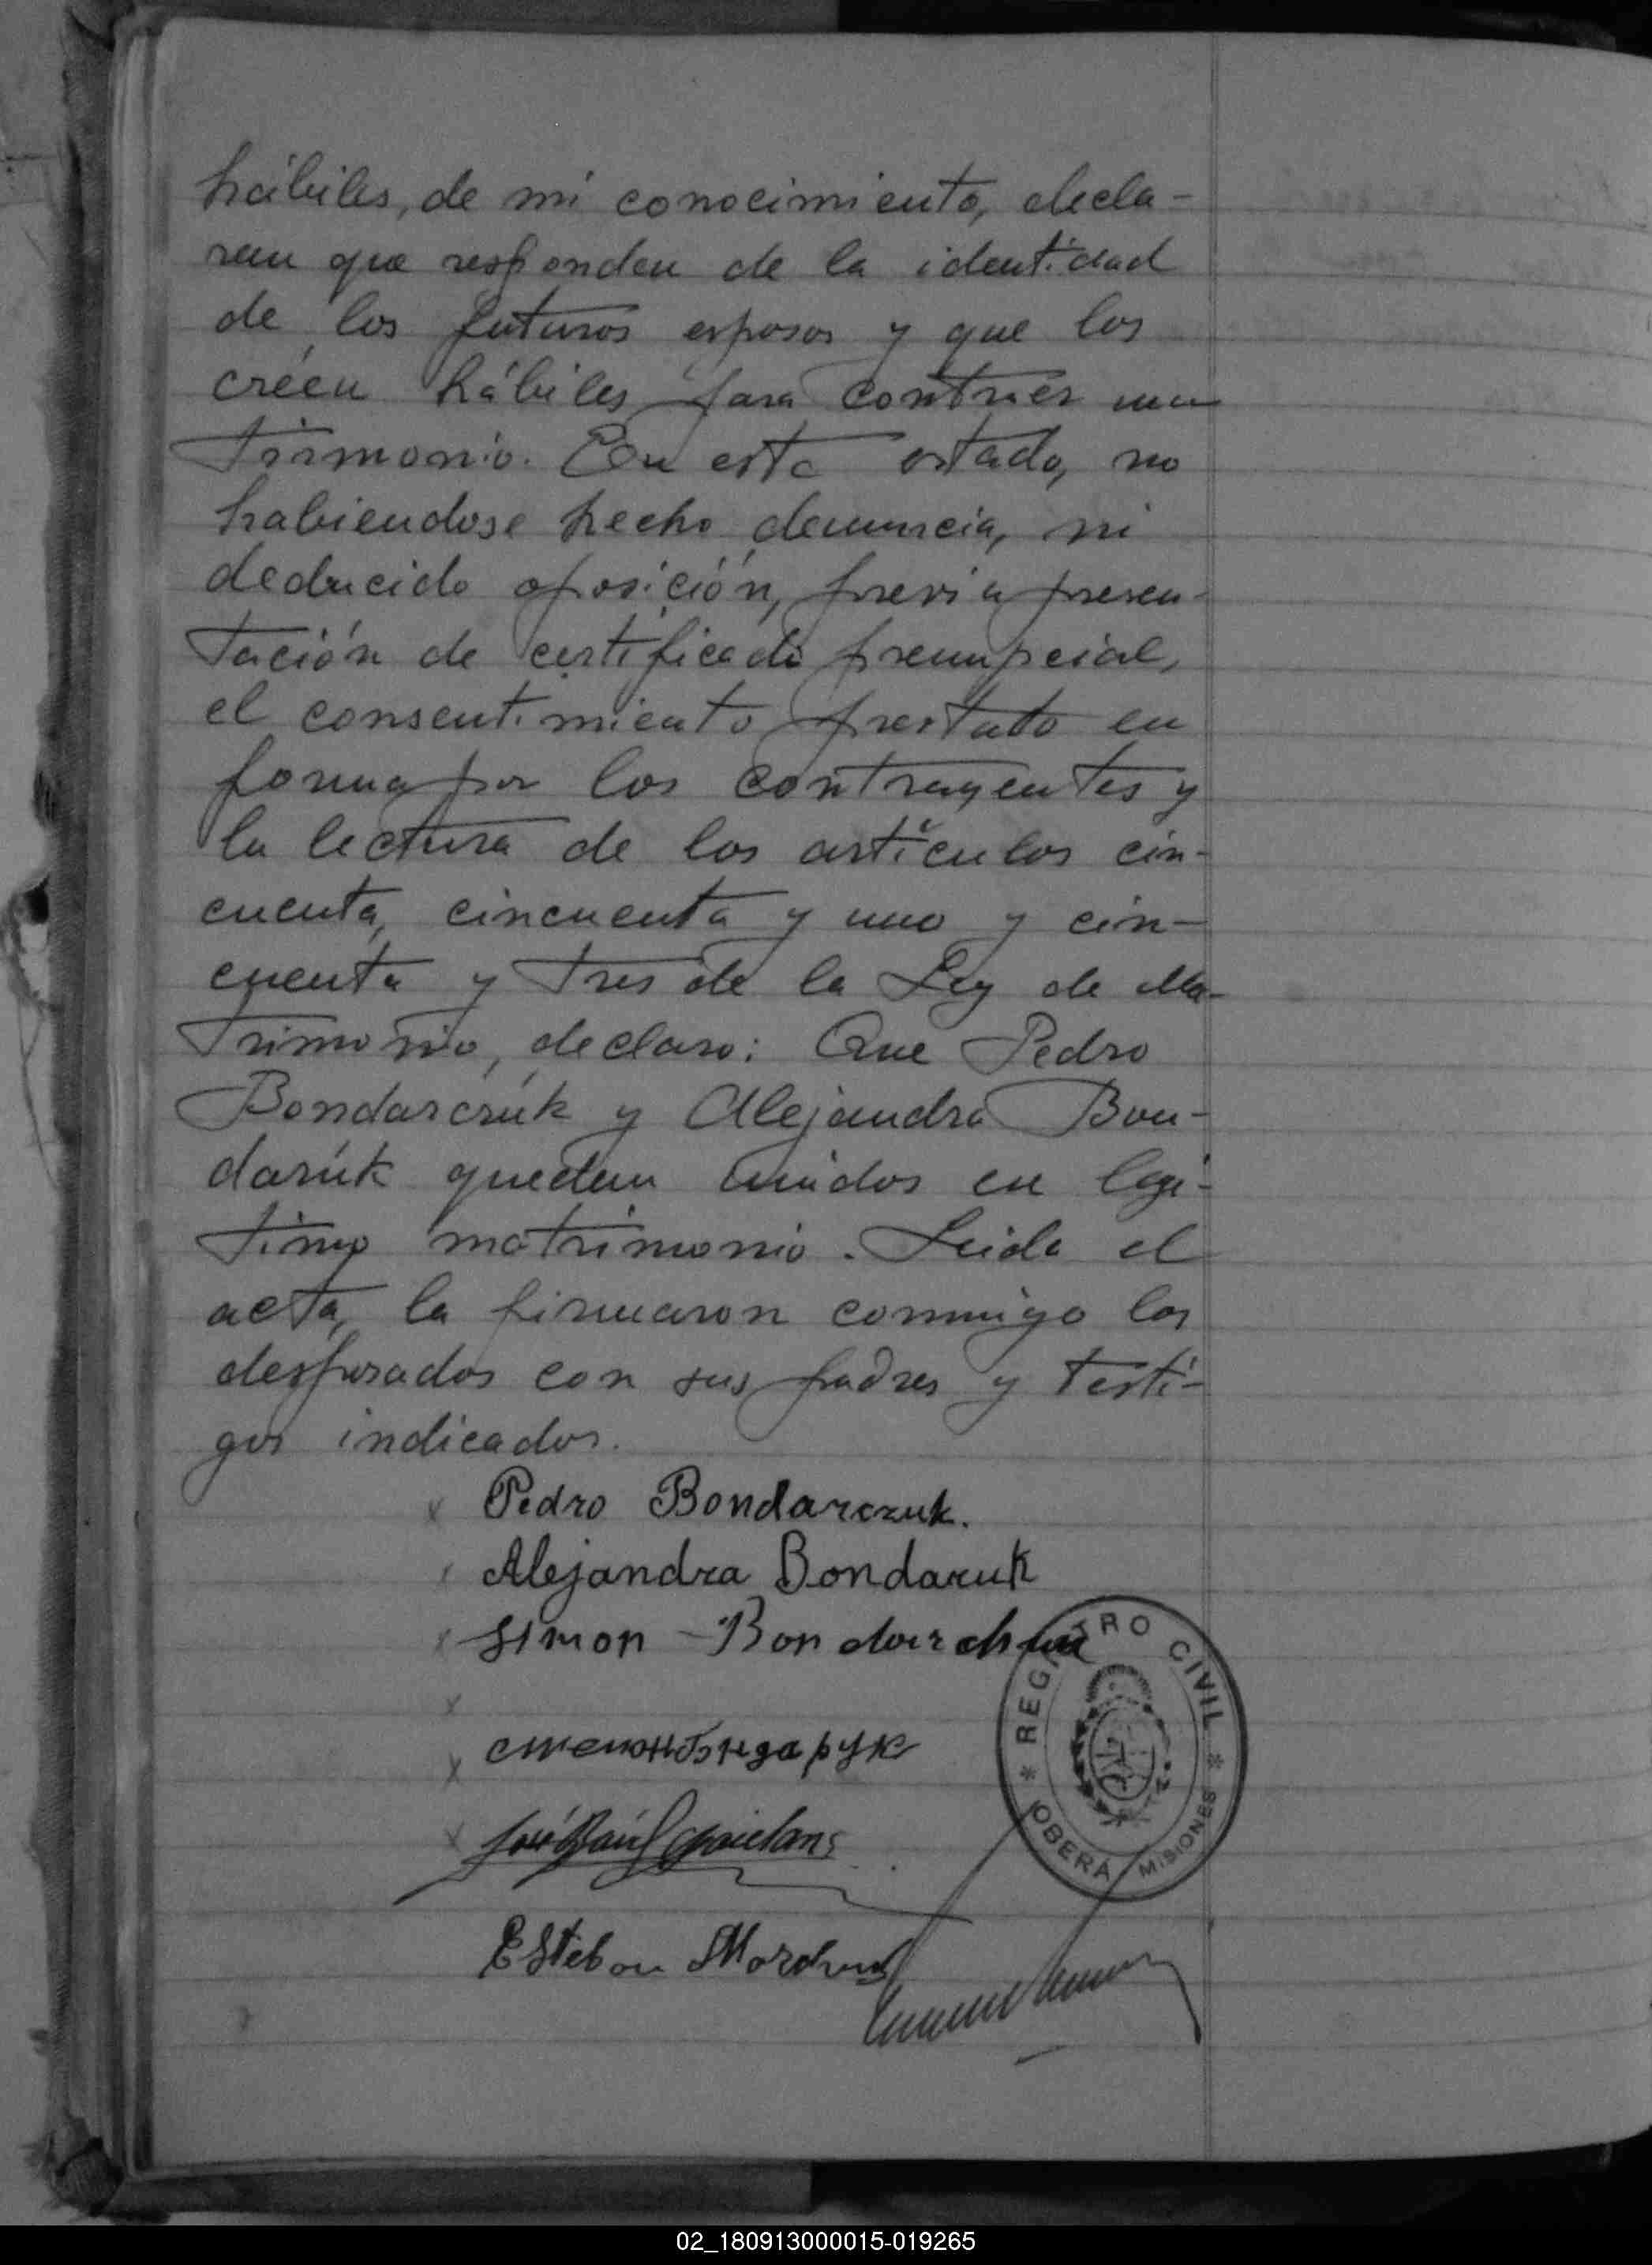 hábiles, de mi conocimiento, decla-
ran que responden de la identidad
de los futuros esposos y que los
créen hábiles para contraer ma
trimonio. En este estado, no
habiendose hecho denuncia, ni
deducido oposición, previa presen-
tación de certificado prenupcial,
el consentimiento prestado en
forma por los contrayentes y
la lectura de los artículos cin-
cuenta, cincuenta y uno y cin-
cuenta y tres de la Ley de Ma-
trimonio, declaro: Que Pedro
Bondarczúk y Alejandra Bon-
darúk quedan unidos en legí-
timo matrimonio. Leida el
acta, la firmaron conmigo los
desposados con sus padres y testi-
gos indicados.
x Pedro Bondarczuk.
Alejandra Bondaruk
x Simon
x
x
x José Raúl
Esteban
REGISTRO CIVIL
* OBERÁ MISIONES *
02_180913000015-019265